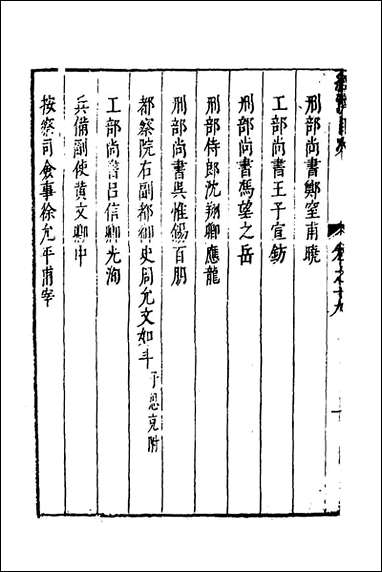 目錄
卷之十九
刑部尚書鄭窒甫曉
工部尚書王子宣鈁
刑部尚書馮望之岳
刑部侍郎沈翔卿應龍
刑部尚書吳惟錫百朋
都察院右副都御史周允文如斗 子思克附
工部尚書呂信卿光洵
兵備副使黃文卿中
按察司僉事徐允平甫宰